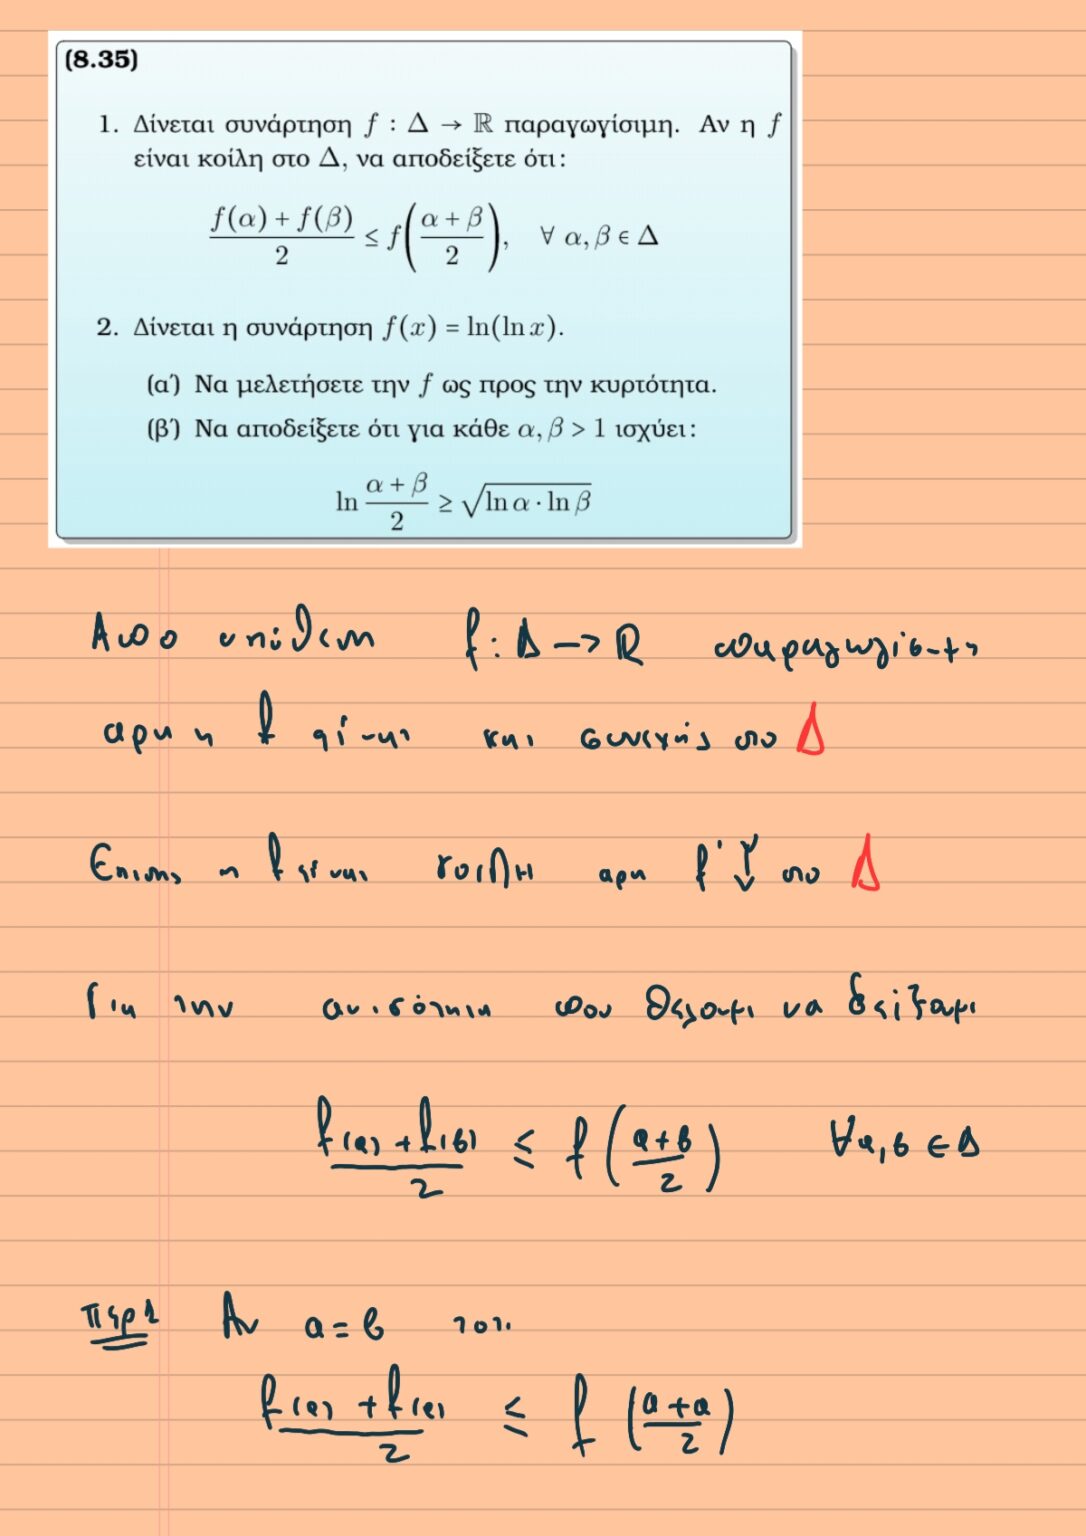 (8.35)
1. Δίνεται συνάρτηση f : Δ → ℝ παραγωγίσιμη. Αν η f
είναι κοίλη στο Δ, να αποδείξετε ότι:
\frac{f(α) + f(β)}{2} ≤ f(\frac{α + β}{2}), ∀ α, β ∈ Δ
2. Δίνεται η συνάρτηση f(x) = ln(ln x).
(α') Να μελετήσετε την f ως προς την κυρτότητα.
(β') Να αποδείξετε ότι για κάθε α, β > 1 ισχύει:
ln \frac{α + β}{2} ≥ \sqrt{ln α · ln β}
Απο υπόθεση f : Δ → ℝ παραγωγίσιμη
αρα η f είναι και συνεχής στο Δ
Επισης η f είναι κοιλη αρα f' ↓ στο Δ
Για την ανισότητα που θελουμε να δείξουμε
\frac{f(α) + f(β)}{2} ≤ f(\frac{α + β}{2}) ∀α, β ∈ Δ
περ1 Αν α = β τοτε
\frac{f(α) + f(α)}{2} ≤ f(\frac{α + α}{2})